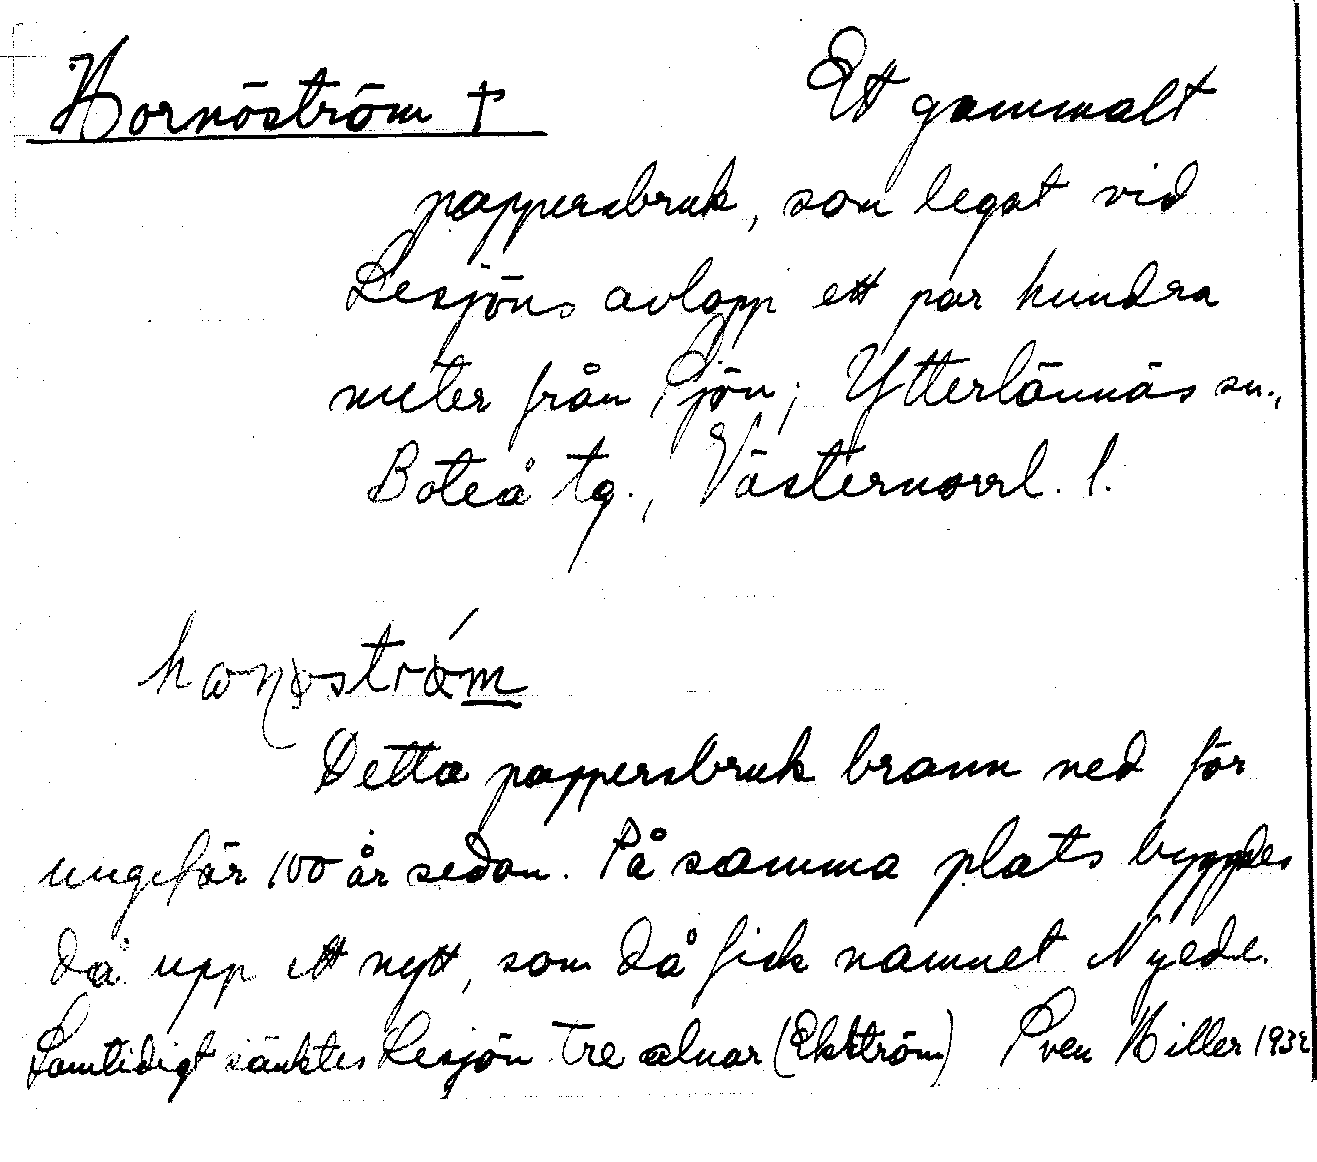 Hornöström †
Ett gammalt
pappersbruk, som legat vid
Lesjöns avlopp ett par hundra
meter från sjön; Ytterlännäs sn.,
Boteå tg., Västernorrl. l.
Detta pappersbruk brann ned för
ungefär 100 år sedan. På samma plats byggdes
då upp ett nytt, som då fick namnet Nyede.
Samtidigt sänktes Lesjön tre alnar (Ekström) Sven Hiller 1932